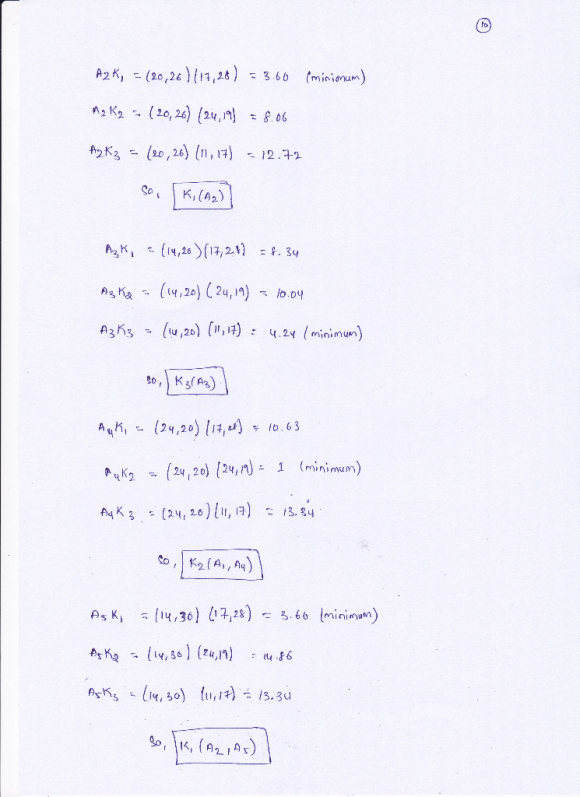 10
A2K1 = (20,26) (17,28) = 3.60 (minimum)
A2K2 = (20,26) (24,19) = 8.06
A2K3 = (20,26) (11,17) = 12.72
So, K1(A2)
A3K1 = (14,20) (17,28) = 8.54
A3K2 = (14,20) (24,19) = 10.04
A3K3 = (14,20) (11,17) = 4.24 (minimum)
So, K3(A3)
A4K1 = (24,20) (17,28) = 10.63
A4K2 = (24,20) (24,19) = 1 (minimum)
A4K3 = (24,20) (11,17) = 13.34
So, K2(A1, A4)
A5K1 = (14,30) (17,28) = 3.60 (minimum)
A5K2 = (14,30) (24,19) = 14.86
A5K3 = (14,30) (11,17) = 13.34
So, K1(A2, A5)